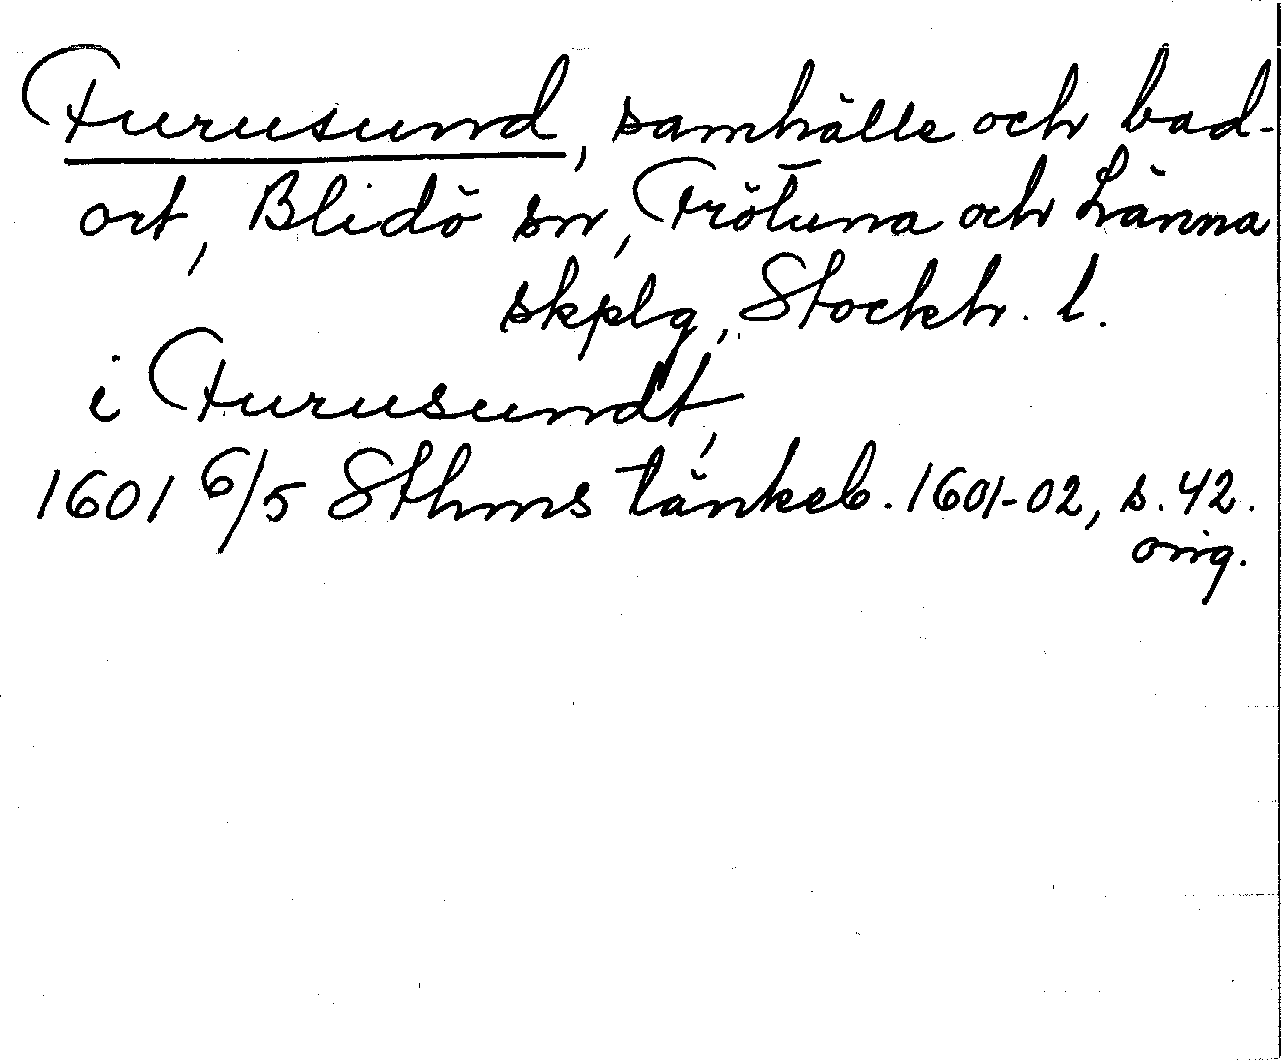 Furusund, samhälle och bad-
ort, Blidö sn, Frötuna och Länna
skplg, Stockh. l.
i Furusundt,
1601 6/5 Sthms tänkeb. 1601-02, s. 42.
orig.